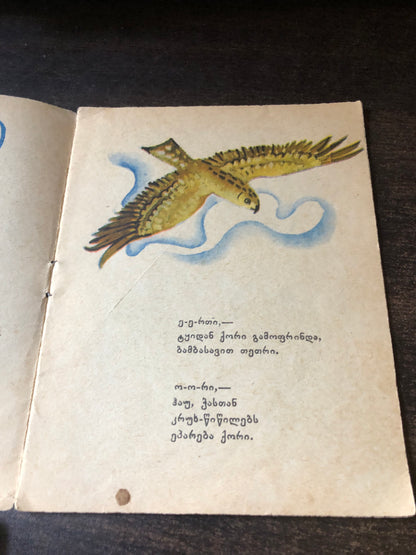 ე-ე-რთი,—
ტყიდან ქორი გამოფრინდა,
ბამბასავით თეთრი.
ო-ო-რი,—
ჰაუ, ქასთან
კრუხ-წიწილებს
ეპარება ქორი.